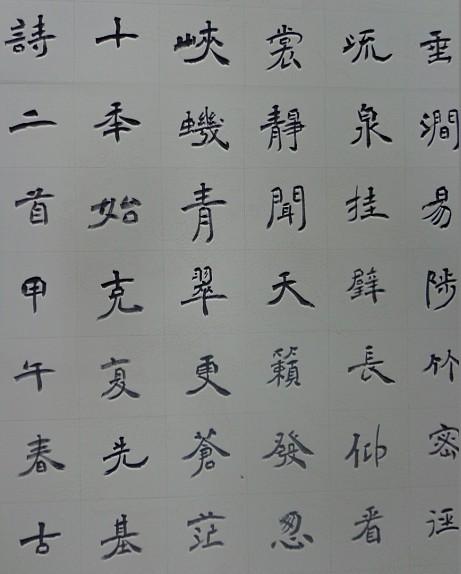 垂澗易陟竹密
泉挂壁長仰看
裳靜聞天籟發忽
峽蟣青翠更蒼茫
十秊始克复先基
詩二首甲午春古